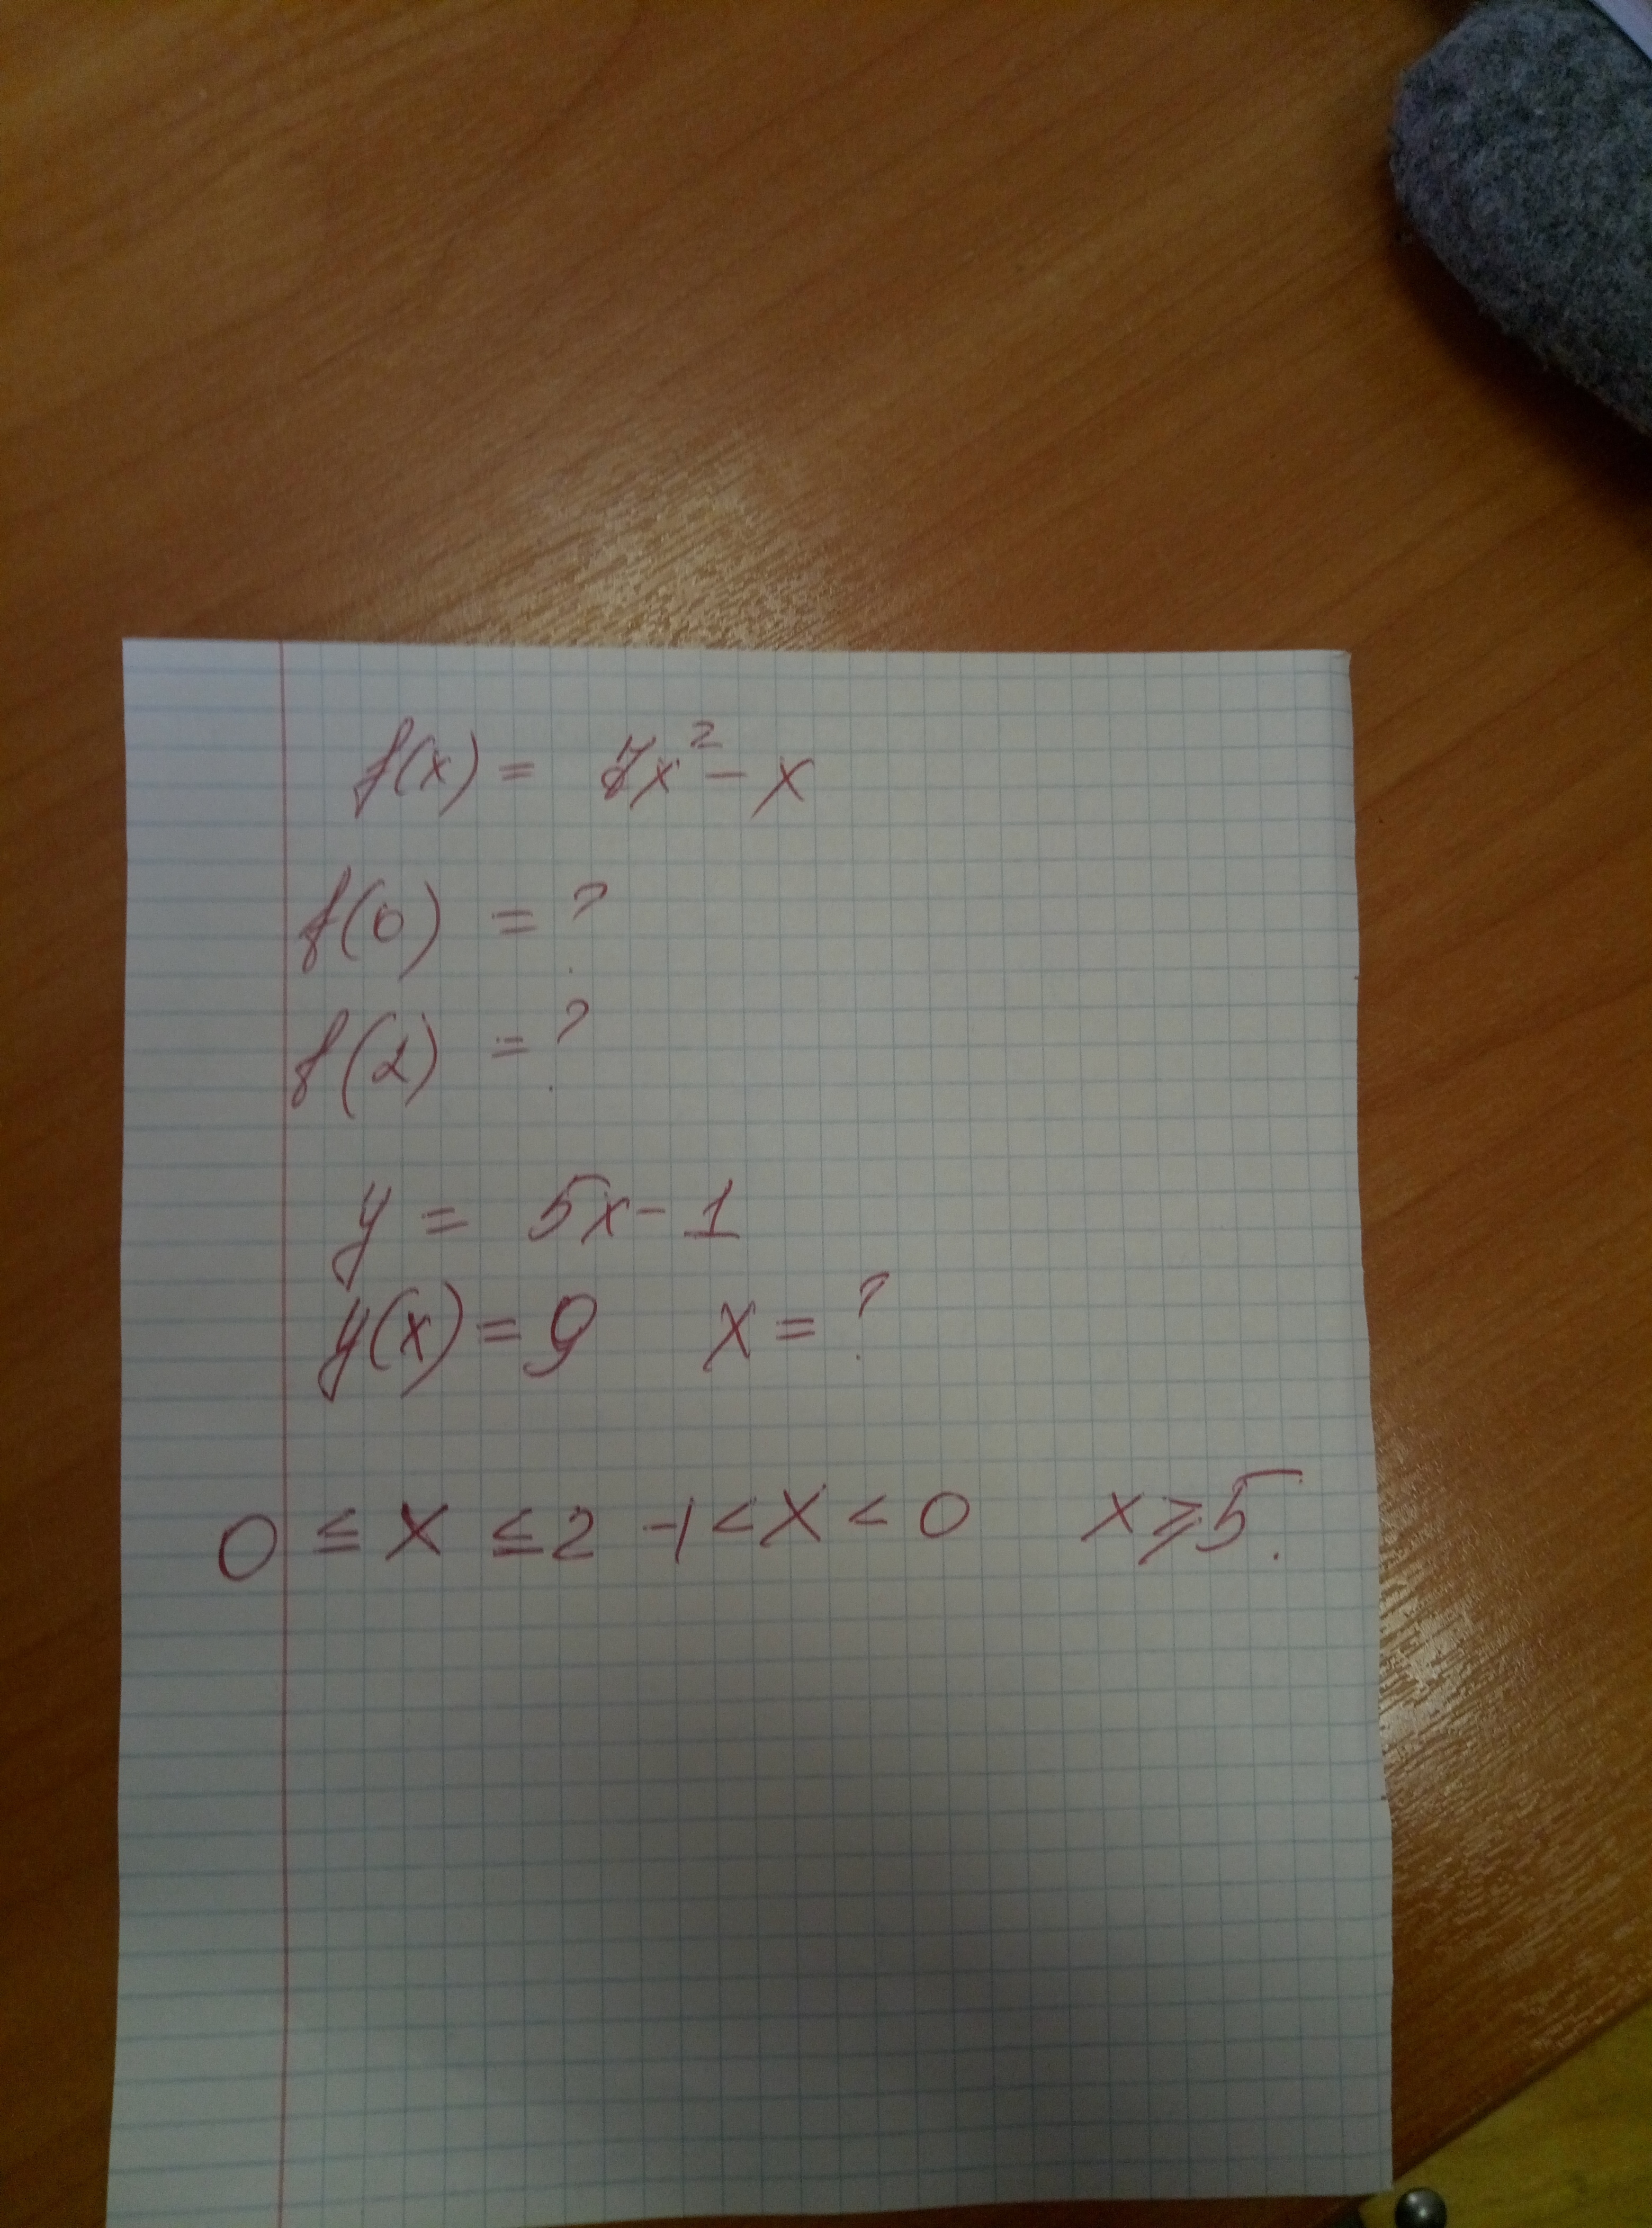 f(x) = 7x² - x
f(0) = ?
f(2) = ?
y = 5x - 1
y(x) = 9 x = ?
0 ≤ x ≤ 2 -1 < x < 0 x ⩾ 5.